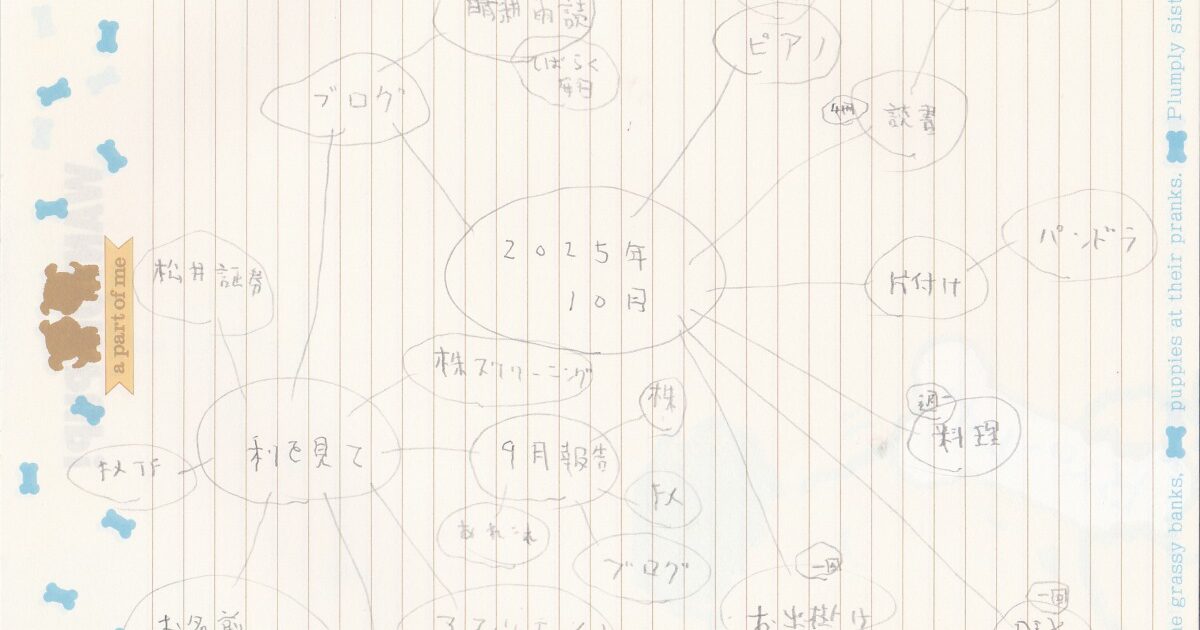 晴耕雨読
しばらく
毎日
ブログ
ピアノ
4冊
読書
2025年
10月
パンドラ
片付け
松井証券
株スクリーニング
株
週一
料理
利を見て
9月報告
FX
あれこれ
ブログ
一回
お出掛け
一回
お名前
a part of me
puppies at their pranks.
Plumply sist
he grassy banks.